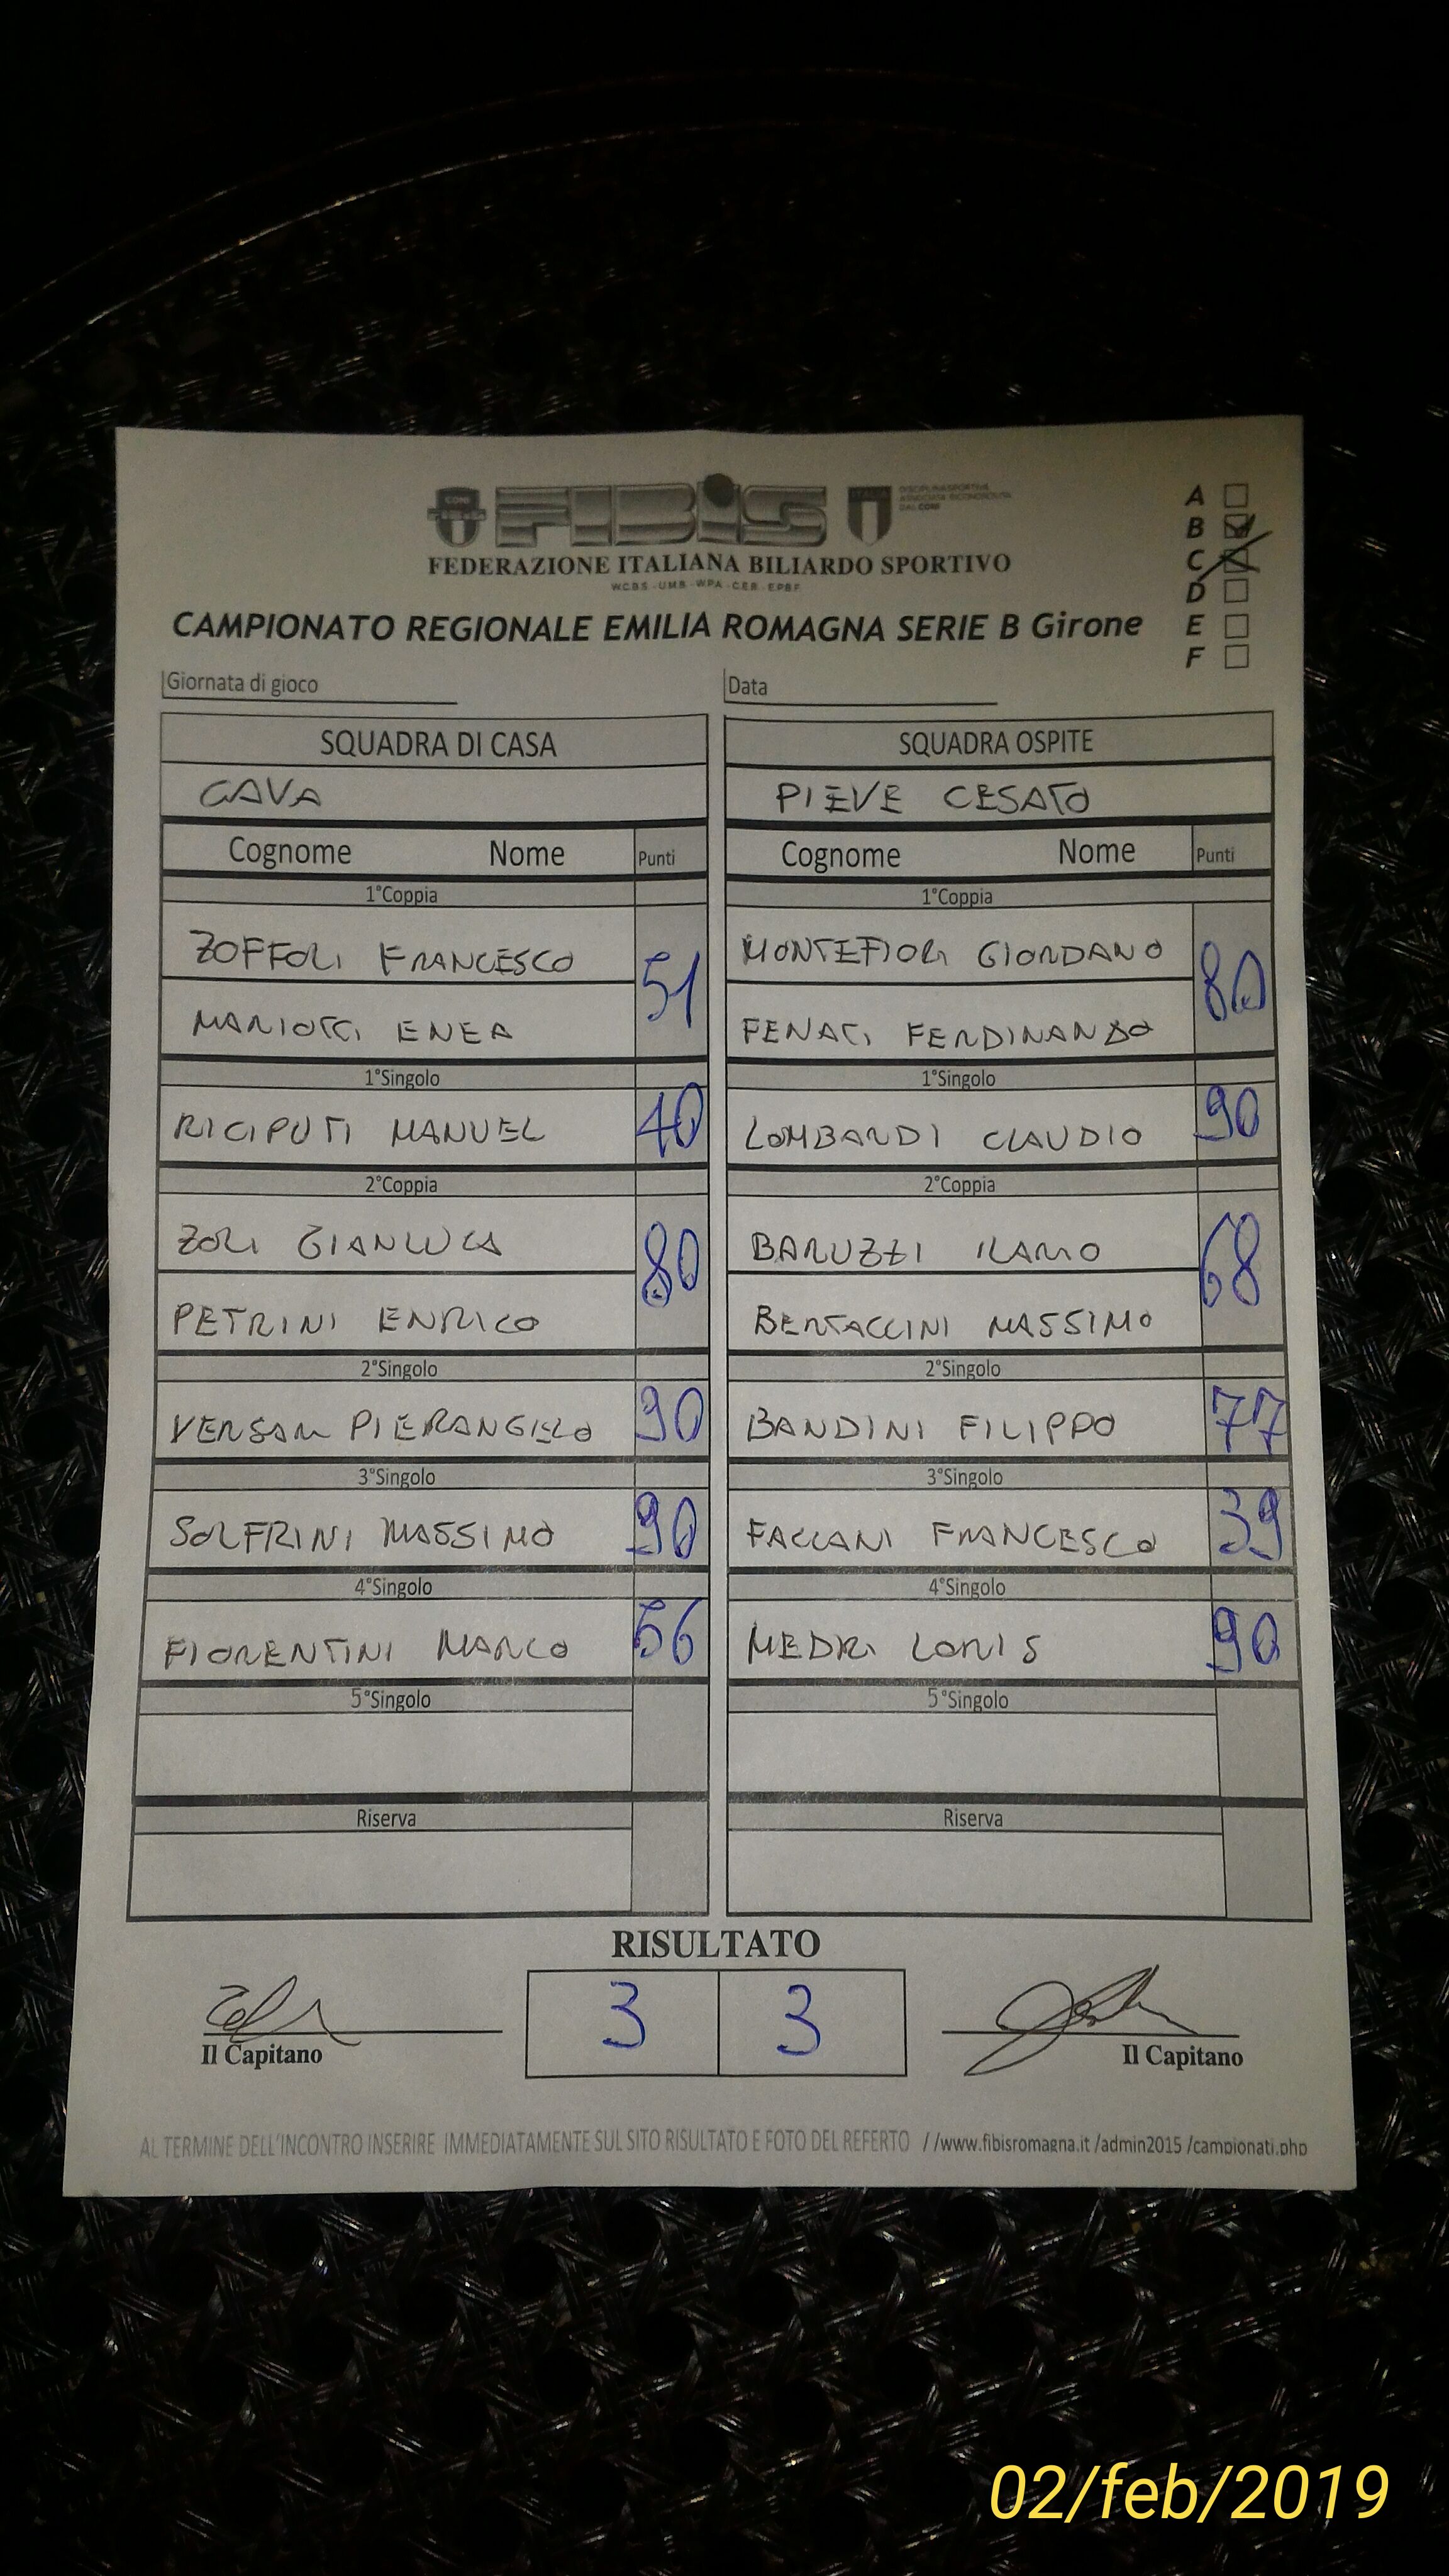 FIBIS
CONI
ITALIA
DISCIPLINA SPORTIVA
ASSOCIATA RICONOSCIUTA
DAL CONI
FEDERAZIONE ITALIANA BILIARDO SPORTIVO
WCBS - UMB - WPA - CEB - EPBF
CAMPIONATO REGIONALE EMILIA ROMAGNA SERIE B Girone
A
B
C
D
E
F
Giornata di gioco
Data
SQUADRA DI CASA
CAVA
Cognome Nome Punti
1°Coppia
ZOFFOLI FRANCESCO
51
MARIOTTI ENEA
1°Singolo
RICIPUTI MANUEL 40
2°Coppia
ZOLI GIANLUCA
80
PETRINI ENRICO
2°Singolo
VERSARI PIERANGELO 90
3°Singolo
SOLFRINI MASSIMO 90
4°Singolo
FIORENTINI MARCO 56
5°Singolo
Riserva
SQUADRA OSPITE
PIEVE CESATO
Cognome Nome Punti
1°Coppia
MONTEFIORI GIORDANO
80
FENATI FERDINANDO
1°Singolo
LOMBARDI CLAUDIO 90
2°Coppia
BARUZZI ILARIO
68
BERTACCINI MASSIMO
2°Singolo
BANDINI FILIPPO 77
3°Singolo
FACCANI FRANCESCO 39
4°Singolo
MEDRI LORIS 90
5°Singolo
Riserva
RISULTATO
3 3
Il Capitano
Il Capitano
AL TERMINE DELL'INCONTRO INSERIRE IMMEDIATAMENTE SUL SITO RISULTATO E FOTO DEL REFERTO //www.fibisromagna.it /admin2015 /campionati.php
02/feb/2019